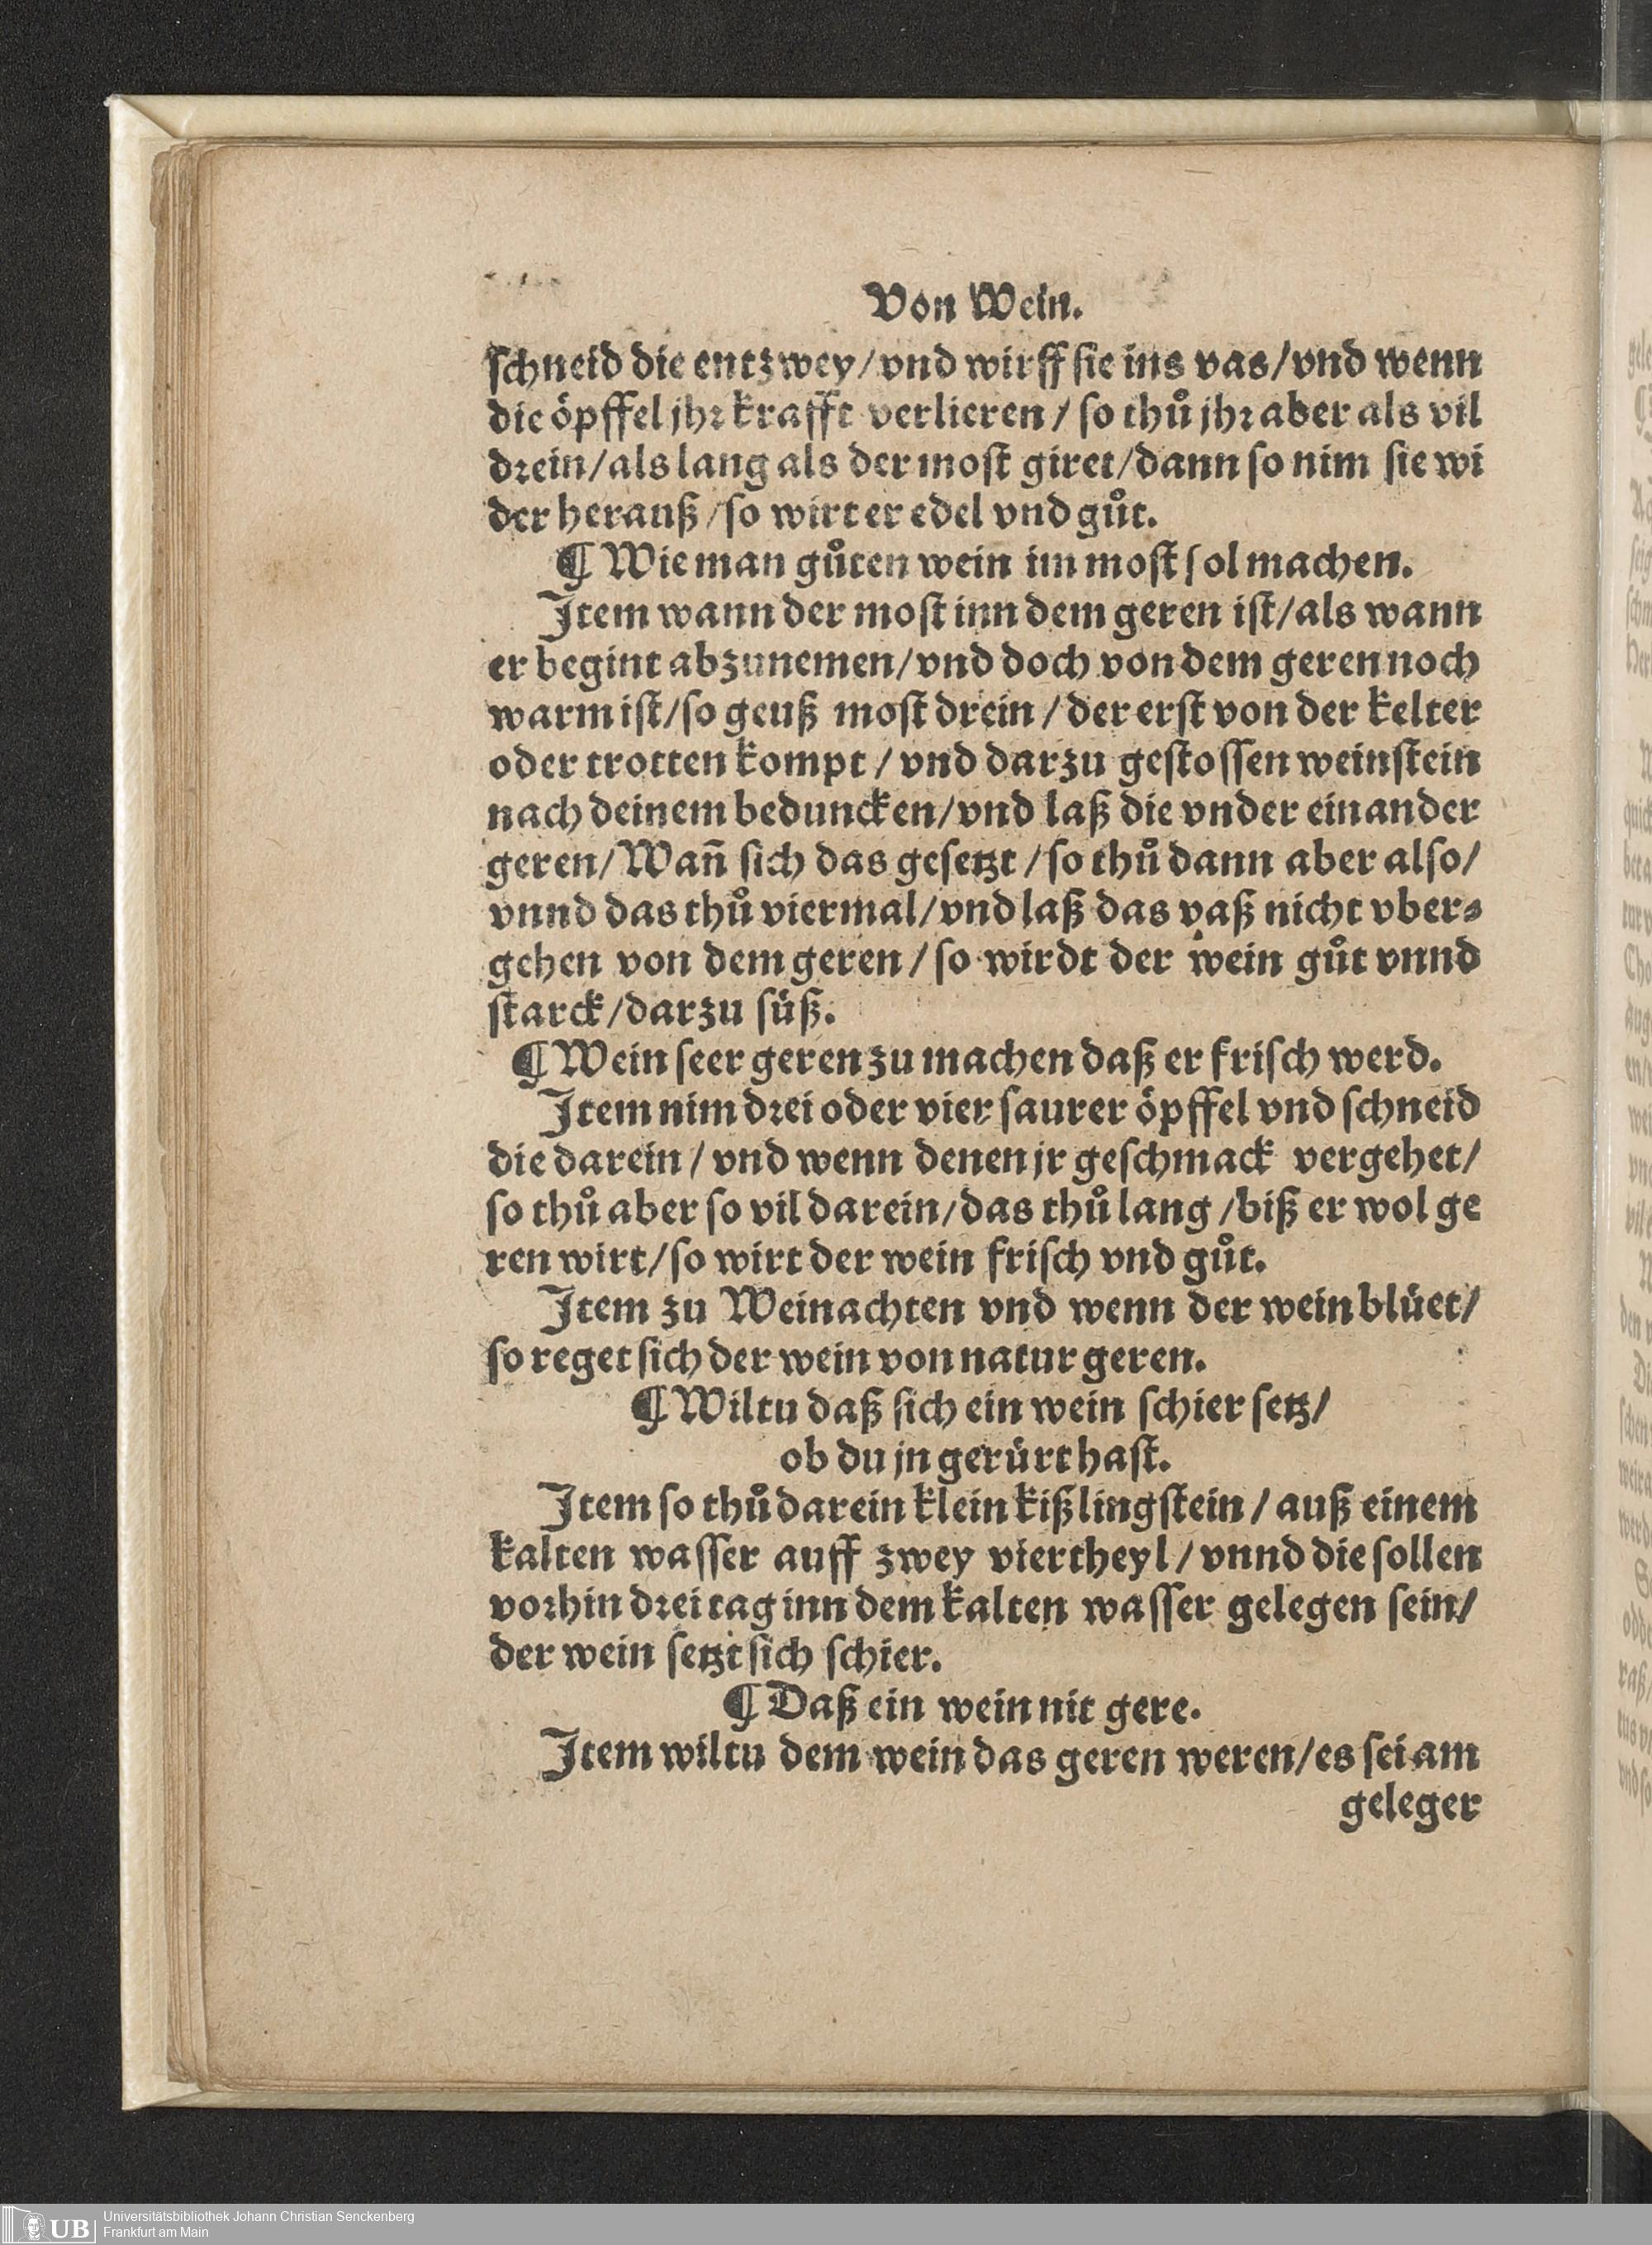 Von Wein.
ſchneid die entzwey/vnd wirff ſie ins vas/vnd wenn
die öpffel jhꝛ krafft verlieren/ ſo thů jhꝛ aber als vil
dꝛein/als lang als der moſt giret/dann ſo nim ſie wi
der herauß/ſo wirt er edel vnd gůt.
¶ Wie man gůten wein im moſt ſol machen.
Item wann der moſt inn dem geren iſt/als wann
er begint abzunemen/vnd doch von dem geren noch
warm iſt/ſo geuß moſt drein/der erſt von der kelter
oder trotten kompt/vnd darzu geſtoſſen weinſtein
nach deinem beduncken/vnd laß die vnder einander
geren/Wañ ſich das geſetzt/ſo thů dann aber alſo/
vnnd das thů viermal/vnd laß das vaß nicht vber⸗
gehen von dem geren/ſo wirdt der wein gůt vnnd
ſtarck/darzu ſüß.
¶ Wein ſeer geren zu machen daß er friſch werd.
Item nim dꝛei oder vier ſaurer öpffel vnd ſchneid
die darein/vnd wenn denen jr geſchmack vergehet/
ſo thů aber ſo vil darein/das thů lang/biß er wol ge
ren wirt/ſo wirt der wein friſch vnd gůt.
Item zu Weinachten vnd wenn der wein blüet/
ſo reget ſich der wein von natur geren.
¶ Wiltu daß ſich ein wein ſchier ſetz/
ob du jn gerürt haſt.
Item ſo thů darein klein kißlingſtein/auß einem
kalten waſſer auff zwey viertheyl/vnnd die ſollen
voꝛhin dꝛei tag inn dem kalten waſſer gelegen ſein/
der wein ſetzt ſich ſchier.
¶ Daß ein wein nit gere.
Item wiltu dem wein das geren weren/es ſei am
geleger
UB
Universitätsbibliothek Johann Christian Senckenberg
Frankfurt am Main